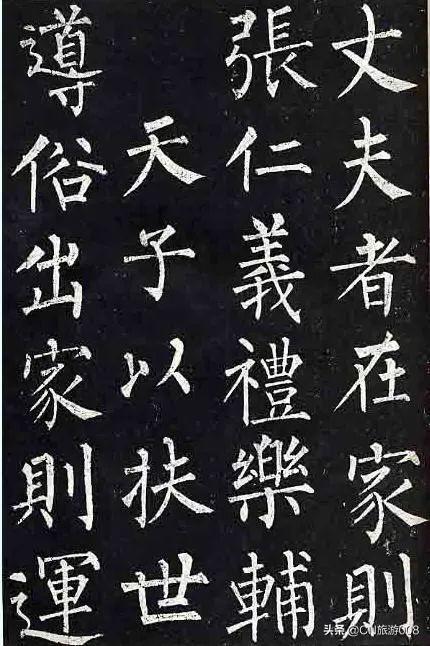 丈夫者在家則
張仁義禮樂輔
天子以扶世
導俗出家則運
头条 @CN旅游008